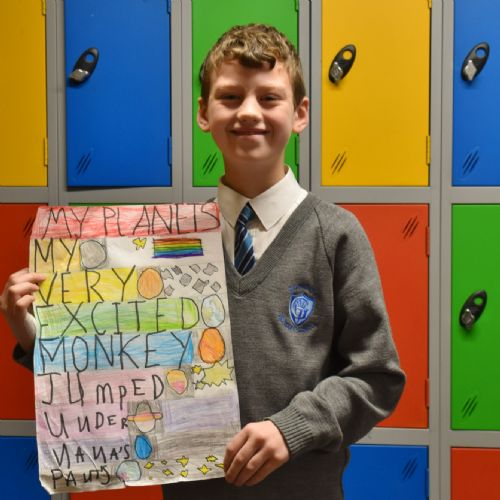 MY PLANETS
MY
VERY
EXCITED
MONKEY
JUMPED
UNDER
NANA'S
PANTS